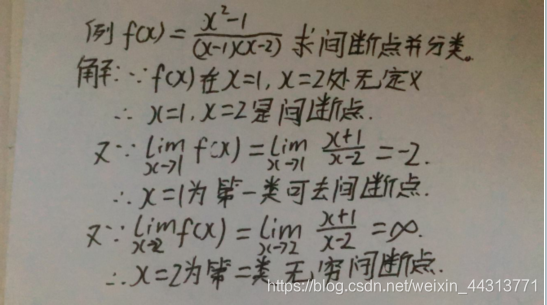 例 f(x) = \frac{x²-1}{(x-1)(x-2)} 求间断点并分类。
解: ∵ f(x) 在 x=1, x=2处无定义
∴ x=1, x=2是间断点.
又∵ \lim_{x→1} f(x) = \lim_{x→1} \frac{x+1}{x-2} = -2.
∴ x=1为第一类可去间断点.
又∵ \lim_{x→2} f(x) = \lim_{x→2} \frac{x+1}{x-2} = ∞.
∴ x=2为第二类无穷间断点.
https://blog.csdn.net/weixin_44313771